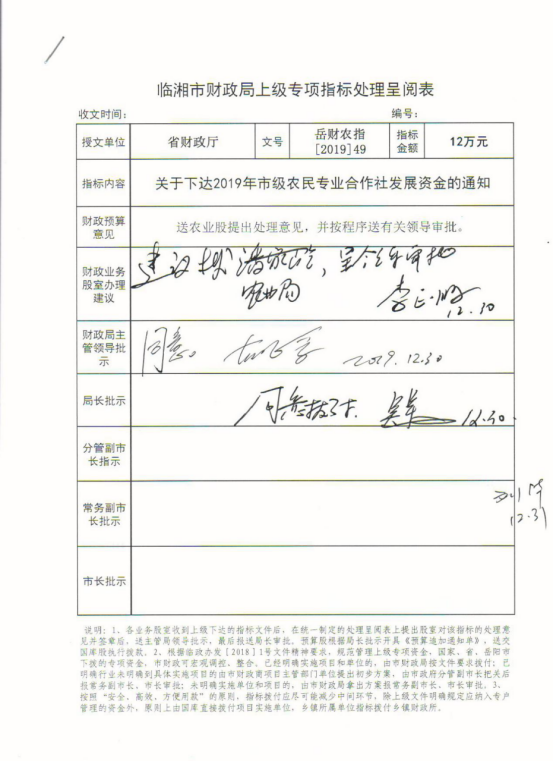 临湘市财政局上级专项指标处理呈阅表
收文时间： 编号：
授文单位 省财政厅 文号 岳财农指[2019]49 指标金额 12万元
指标内容 关于下达2019年市级农民专业合作社发展资金的通知
财政预算意见 送农业股提出处理意见，并按程序送有关领导审批。
财政业务股室办理建议 建议拨 呈领导审批
农业局
12.10
财政局主管领导批示 同意。 2019.12.30
局长批示 同意拨付. 12.30.
分管副市长指示
常务副市长批示
12.31
市长批示
说明：1、各业务股室收到上级下达的指标文件后，在统一制定的处理呈阅表上提出股室对该指标的处理意
见并签章后，送主管局领导批示，最后报送局长审批。预算股根据局长批示开具《预算追加通知单》，送交
国库股执行拨款。2、根据临政办发[2018]1号文件精神要求，规范管理上级专项资金，国家、省、岳阳市
下拨的专项资金，市财政可宏观调控、整合。已经明确实施项目和单位的，由市财政局按文件要求拨付；已
明确行业未明确到具体实施项目的由市财政商项目主管部门单位提出初步方案，由市政府分管副市长把关后
报常务副市长、市长审批；未明确实施单位和项目的，由市财政局拿出方案报常务副市长、市长审批。3、
按照“安全、高效、方便用款”的原则，指标拨付应尽可能减少中间环节，除上级文件明确规定应纳入专户
管理的资金外，原则上由国库直接拨付项目实施单位，乡镇所属单位指标拨付乡镇财政所。